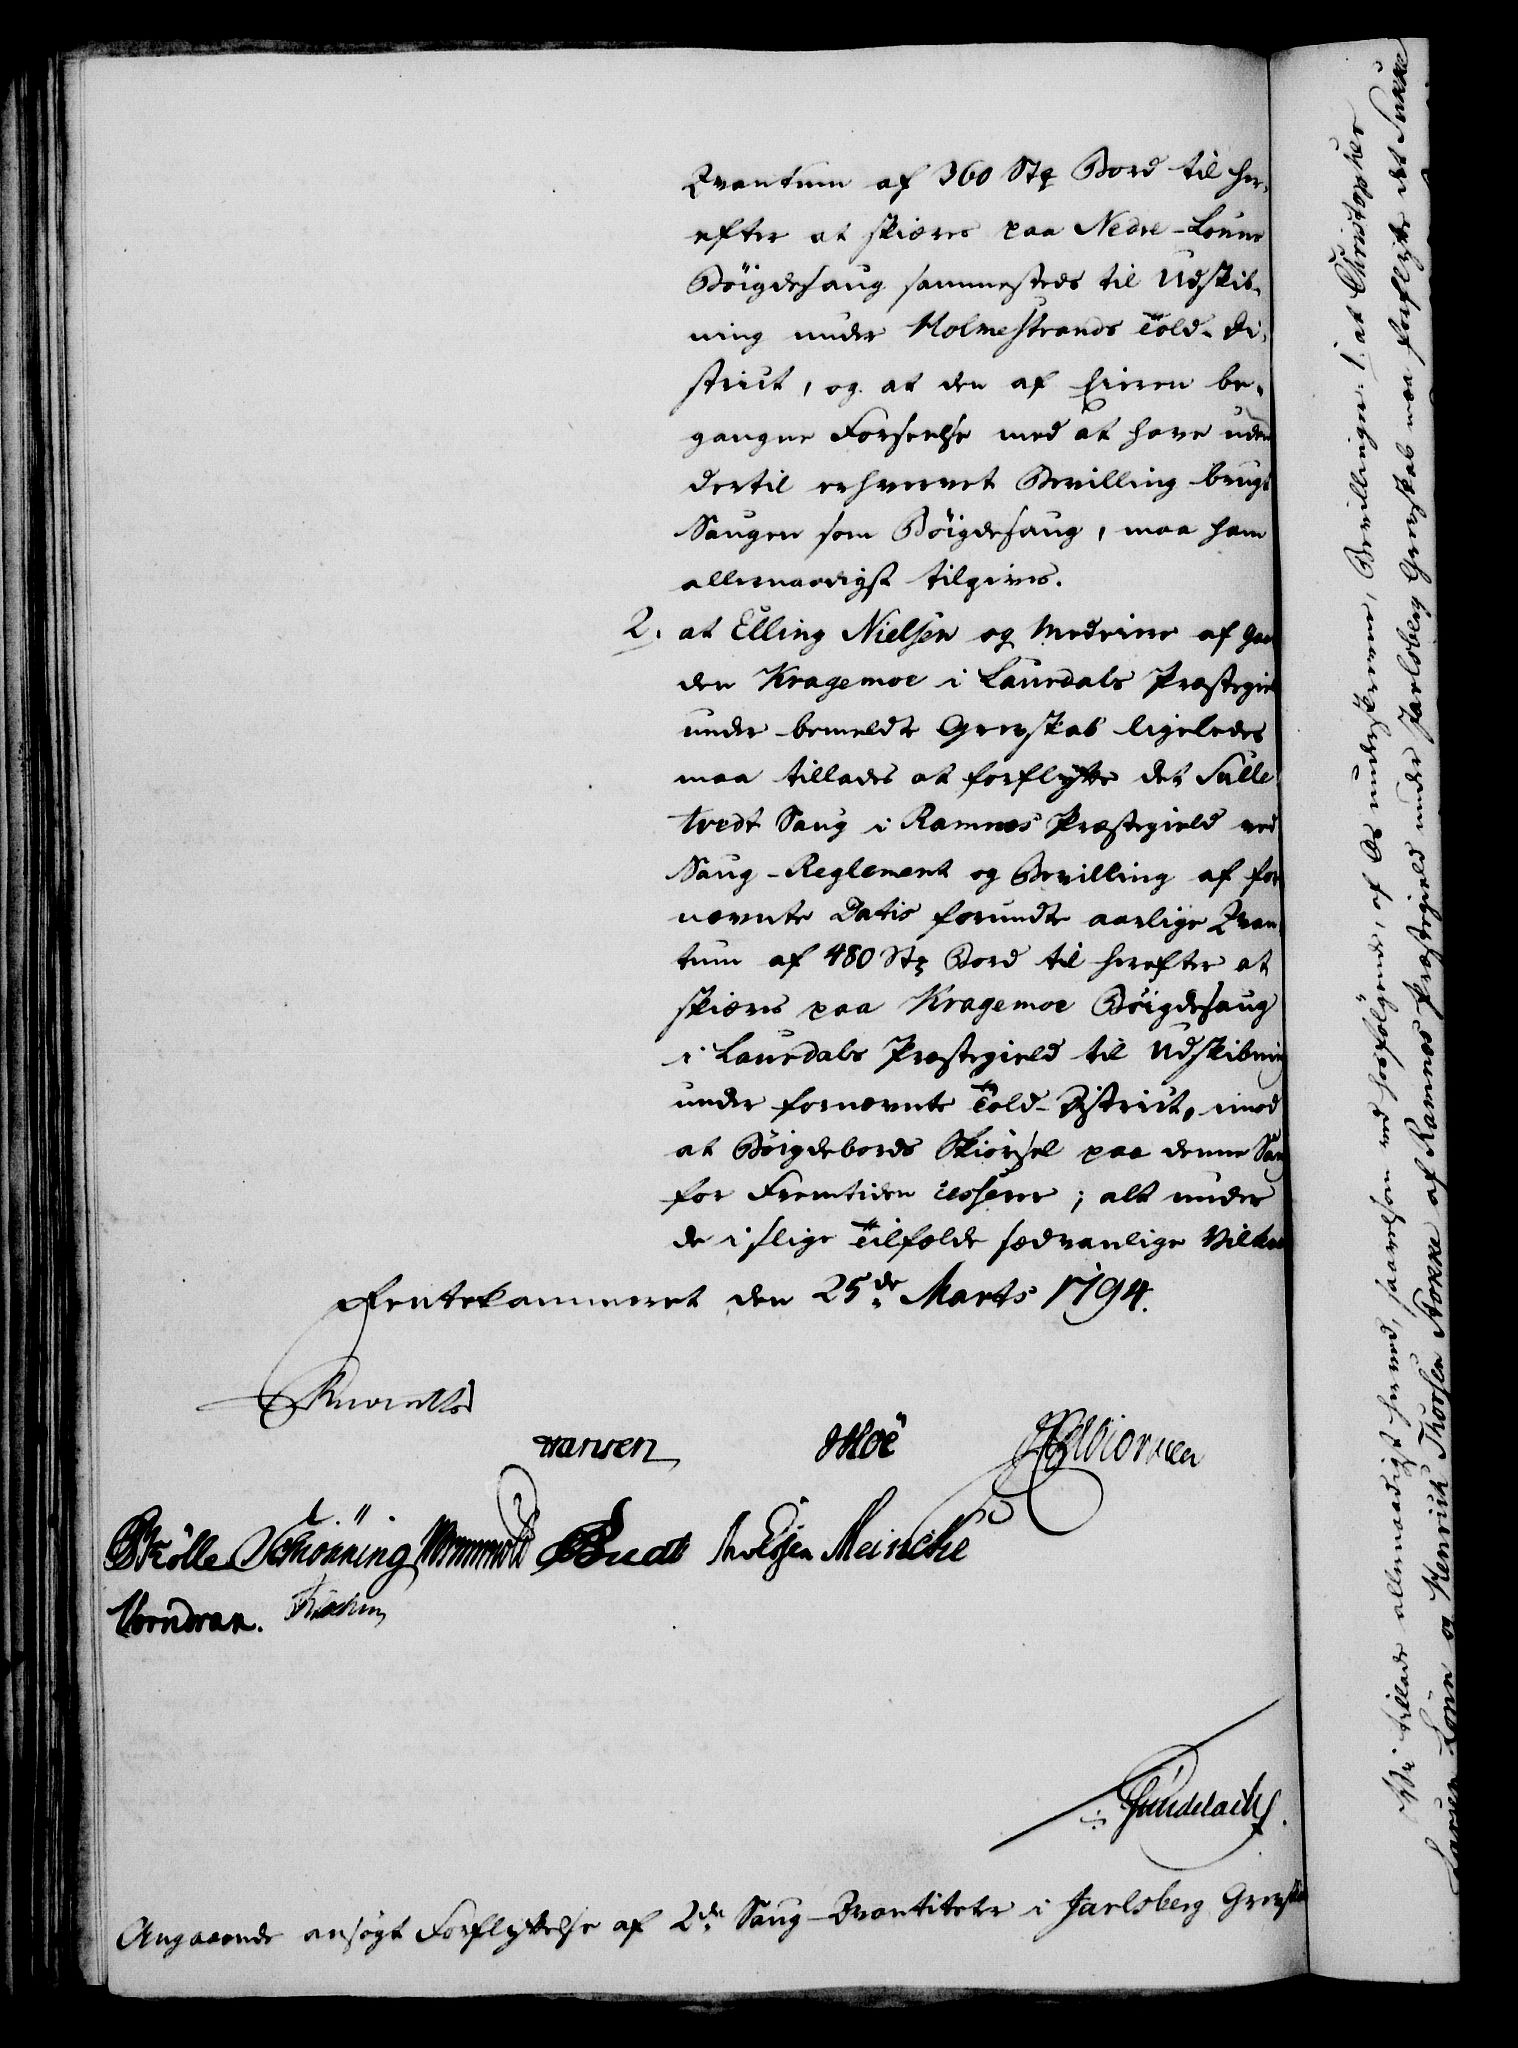 Qvantum af 360 Stk Bord til her-
efter at skiæres paa Nedre-Lønne
Bøigdesaug sammesteds til Udskib-
ning under Holmestrands Told-Di-
strict, og at den af Eieren be-
gangne Forseelse med at have uden
dertil erhvervet Bevilling brugt
Saugen som Bøigdesaug, maa ham
allernaadigst tilgives.
2. at Elling Nielsen og Medeiere af Gaar
den Kragemoe i Laurdals Præstegield
under bemeldte Grevskab ligeledes
maa tillades at forflytte det Sulle
tvedt Saug i Ramnæs Præstegield ved
Saug-Reglement og Bevilling af for
nævnte Datis forundte aarlige Qvan-
tum af 480 Stk Bord til herefter at
skiæres paa Kragemoe Bøigdesaug
i Laurdals Præstegield til Udskibning
under fornævnte Told-District, imod
at Bøigdebords Skiørsel paa denne Saug
for Fremtiden cesserer; alt under
de i slige Tilfælde sædvanlige Vilkaar
Rentekammeret den 25de Marts 1794.
Hansen Moë
Schiønning Wormwold Budtz Meincke
Vorndran.
Gündelach.
Angaaende ansøgt Forflyttelse af 2de Saug-Qvantiteter i Jarlsberg Grevskab
Vi tillade allernaadigst herved, saavelsom ved hosfølgende, af Os underskrevne, Bevillinger: 1. at Christopher
Larsen Lønn og Henrich Thorsen Stokke af Ramnæs Præstegield under Jarlsberg Grevskab maa forflytte det Sukke